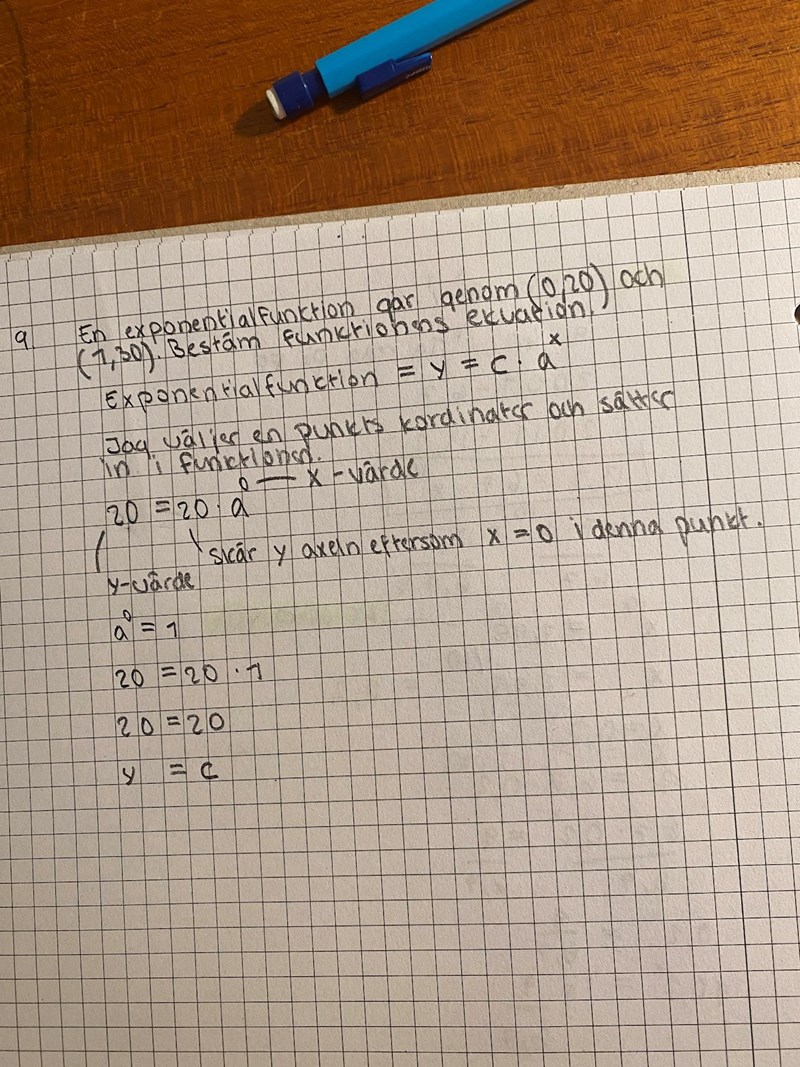 9 En exponentialfunktion går genom (0,20) och
(1,30). Bestäm funktionens ekvation.
Exponentialfunction = y = C · a^x
Jag väljer en punkts kordinater och sätter
in i funktionen.
20 = 20 · a^0 — x-värde
skär y axeln eftersom x = 0 i denna punkt.
y-värde
a^0 = 1
20 = 20 · 1
20 = 20
y = C